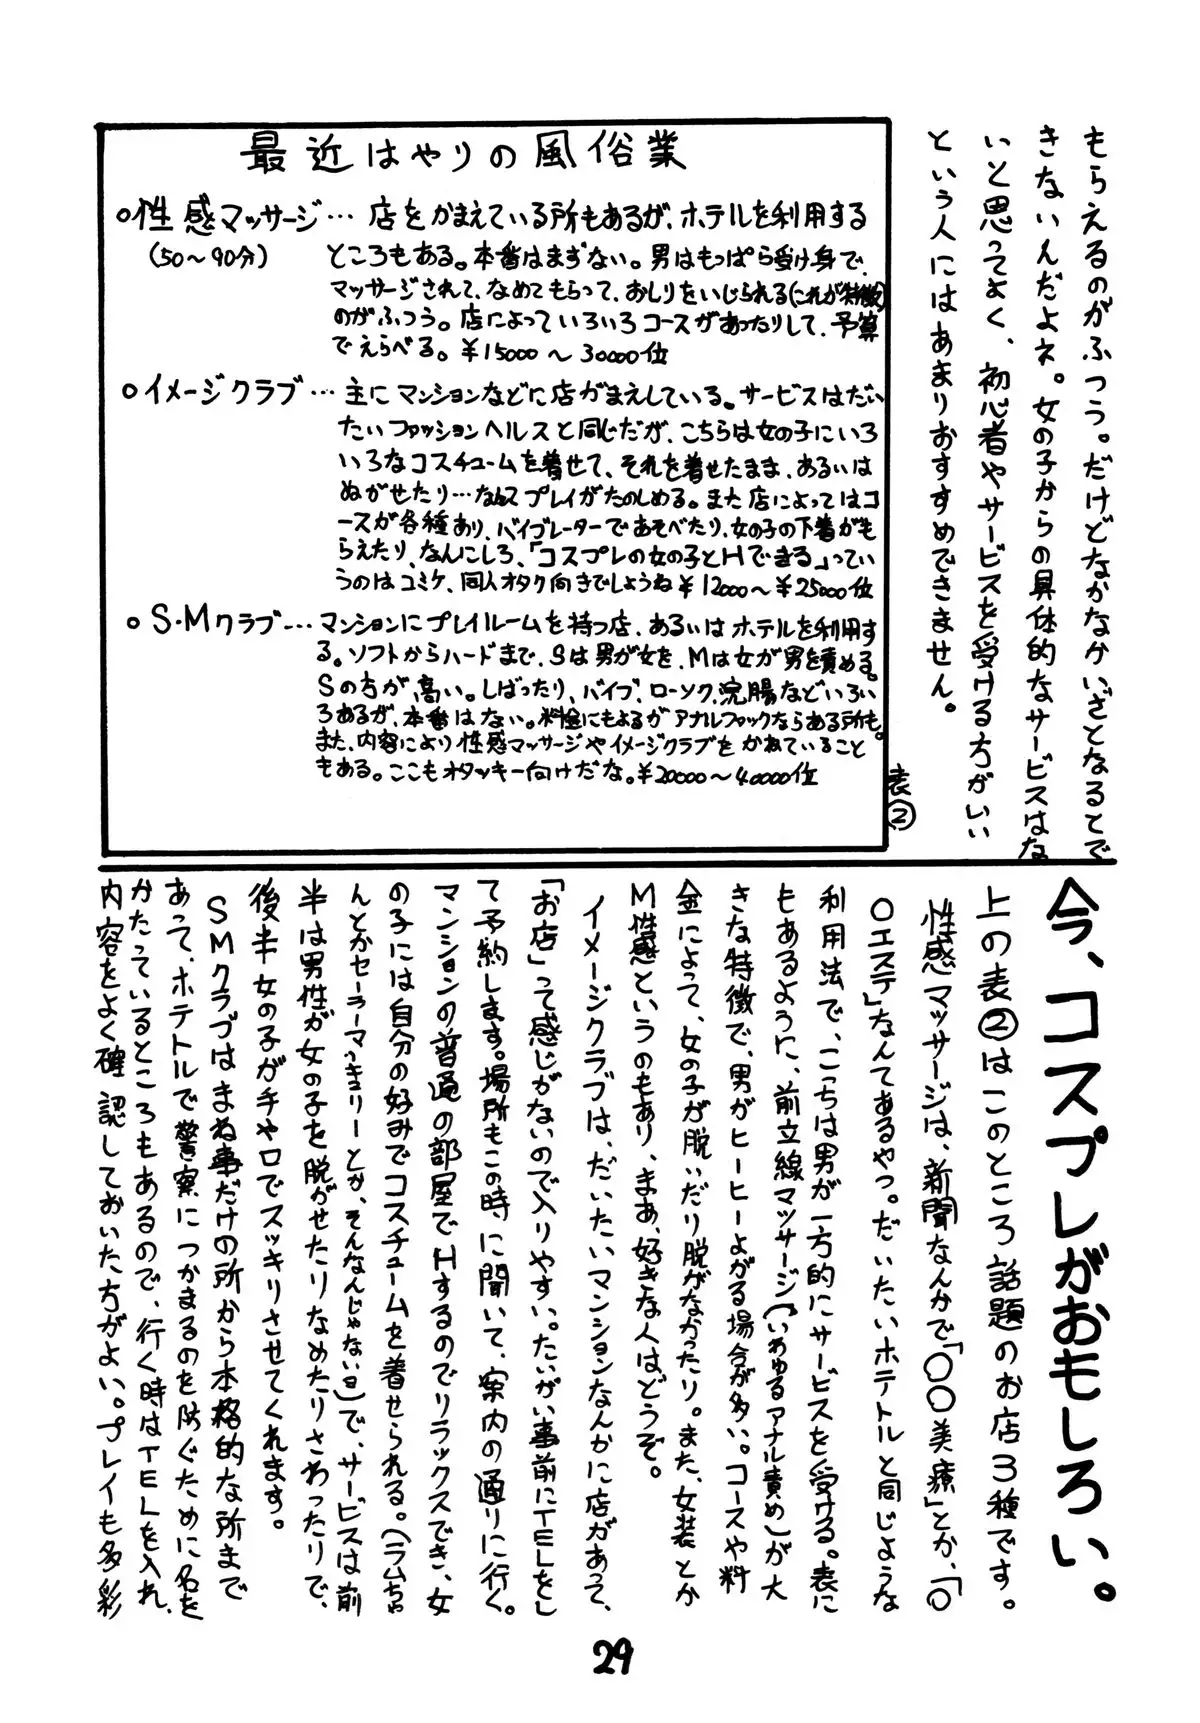 もらえるのがふつう。だけどなかなかいざとなるとで
きないんだよネ。女の子からの具体的なサービスはな
いと思ってよく、初心者やサービスを受ける方がいい
という人にはあまりおすすめできません。
最近はやりの風俗業
○性感マッサージ…店をかまえている所もあるが、ホテルを利用する
(50〜90分)
ところもある。本番はまずない。男はもっぱら受け身で、
マッサージされて、なめてもらって、おしりをいじられる(これが特徴)
のがふつう。店によっていろいろコースがあったりして、予算
でえらべる。¥15000〜30000位
○イメージクラブ…主にマンションなどに店がまえしている。サービスはだい
たいファッションヘルスと同じだが、こちらは女の子にいろ
いろなコスチュームを着せて、それを着せたまま、あるいは
ぬがせたり…なんてプレイがたのしめる。また店によってはコ
ースが各種あり、バイブレーターであそべたり、女の子の下着がも
らえたり、なんにしろ、「コスプレの女の子とHできる」ってい
うのはコミケ、同人オタク向きでしょうね¥12000〜¥25000位
○S・Mクラブ…マンションにプレイルームを持つ店、あるいはホテルを利用す
る。ソフトからハードまで、Sは男が女を、Mは女が男を責める。
Sの方が高い。しばったり、バイブ、ローソク、浣腸などいろい
ろあるが、本番はない。料金にもよるがアナルファックならある所も。
また、内容により性感マッサージやイメージクラブをかねていること
もある。ここもオタッキー向けだな。¥20000〜40000位
表②
今、コスプレがおもしろい。
上の表②はこのところ話題のお店3種です。
性感マッサージは、新聞なんかで「○○美療」とか、「○
○エステ」なんてあるやつ。だいたいホテトルと同じような
利用法で、こっちは男が一方的にサービスを受ける。表に
もあるように、前立線マッサージ(いわゆるアナル責め)が大
きな特徴で、男がヒーヒーよがる場合が多い。コースや料
金によって、女の子が脱いだり脱がなかったり。また、女装とか
M性感というのもあり、まあ、好きな人はどうぞ。
イメージクラブは、だいたいマンションなんかに店があって、
「お店」って感じがないので入りやすい。たいがい事前にTELをし
て予約します。場所もこの時に聞いて、案内の通りに行く。
マンションの普通の部屋でHするのでリラックスでき、女
の子には自分の好みでコスチュームを着せられる。(ラムちゃ
んとかセーラーマーキュリーとか、そんなんじゃない日)で、サービスは前
半は男性が女の子を脱がせたりなめたりさわったりで、
後半女の子が手や口でスッキリさせてくれます。
SMクラブはまね事だけの所から本格的な所まで
あって、ホテトルで警察につかまるのを防ぐために名を
かたっているところもあるので、行く時はTELを入れ、
内容をよく確認しておいた方がよい。プレイも多彩
29